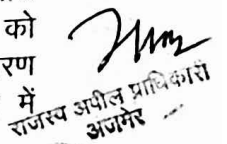 को
रण
में
राजस्व अपील प्राधिकारी
अजमेर